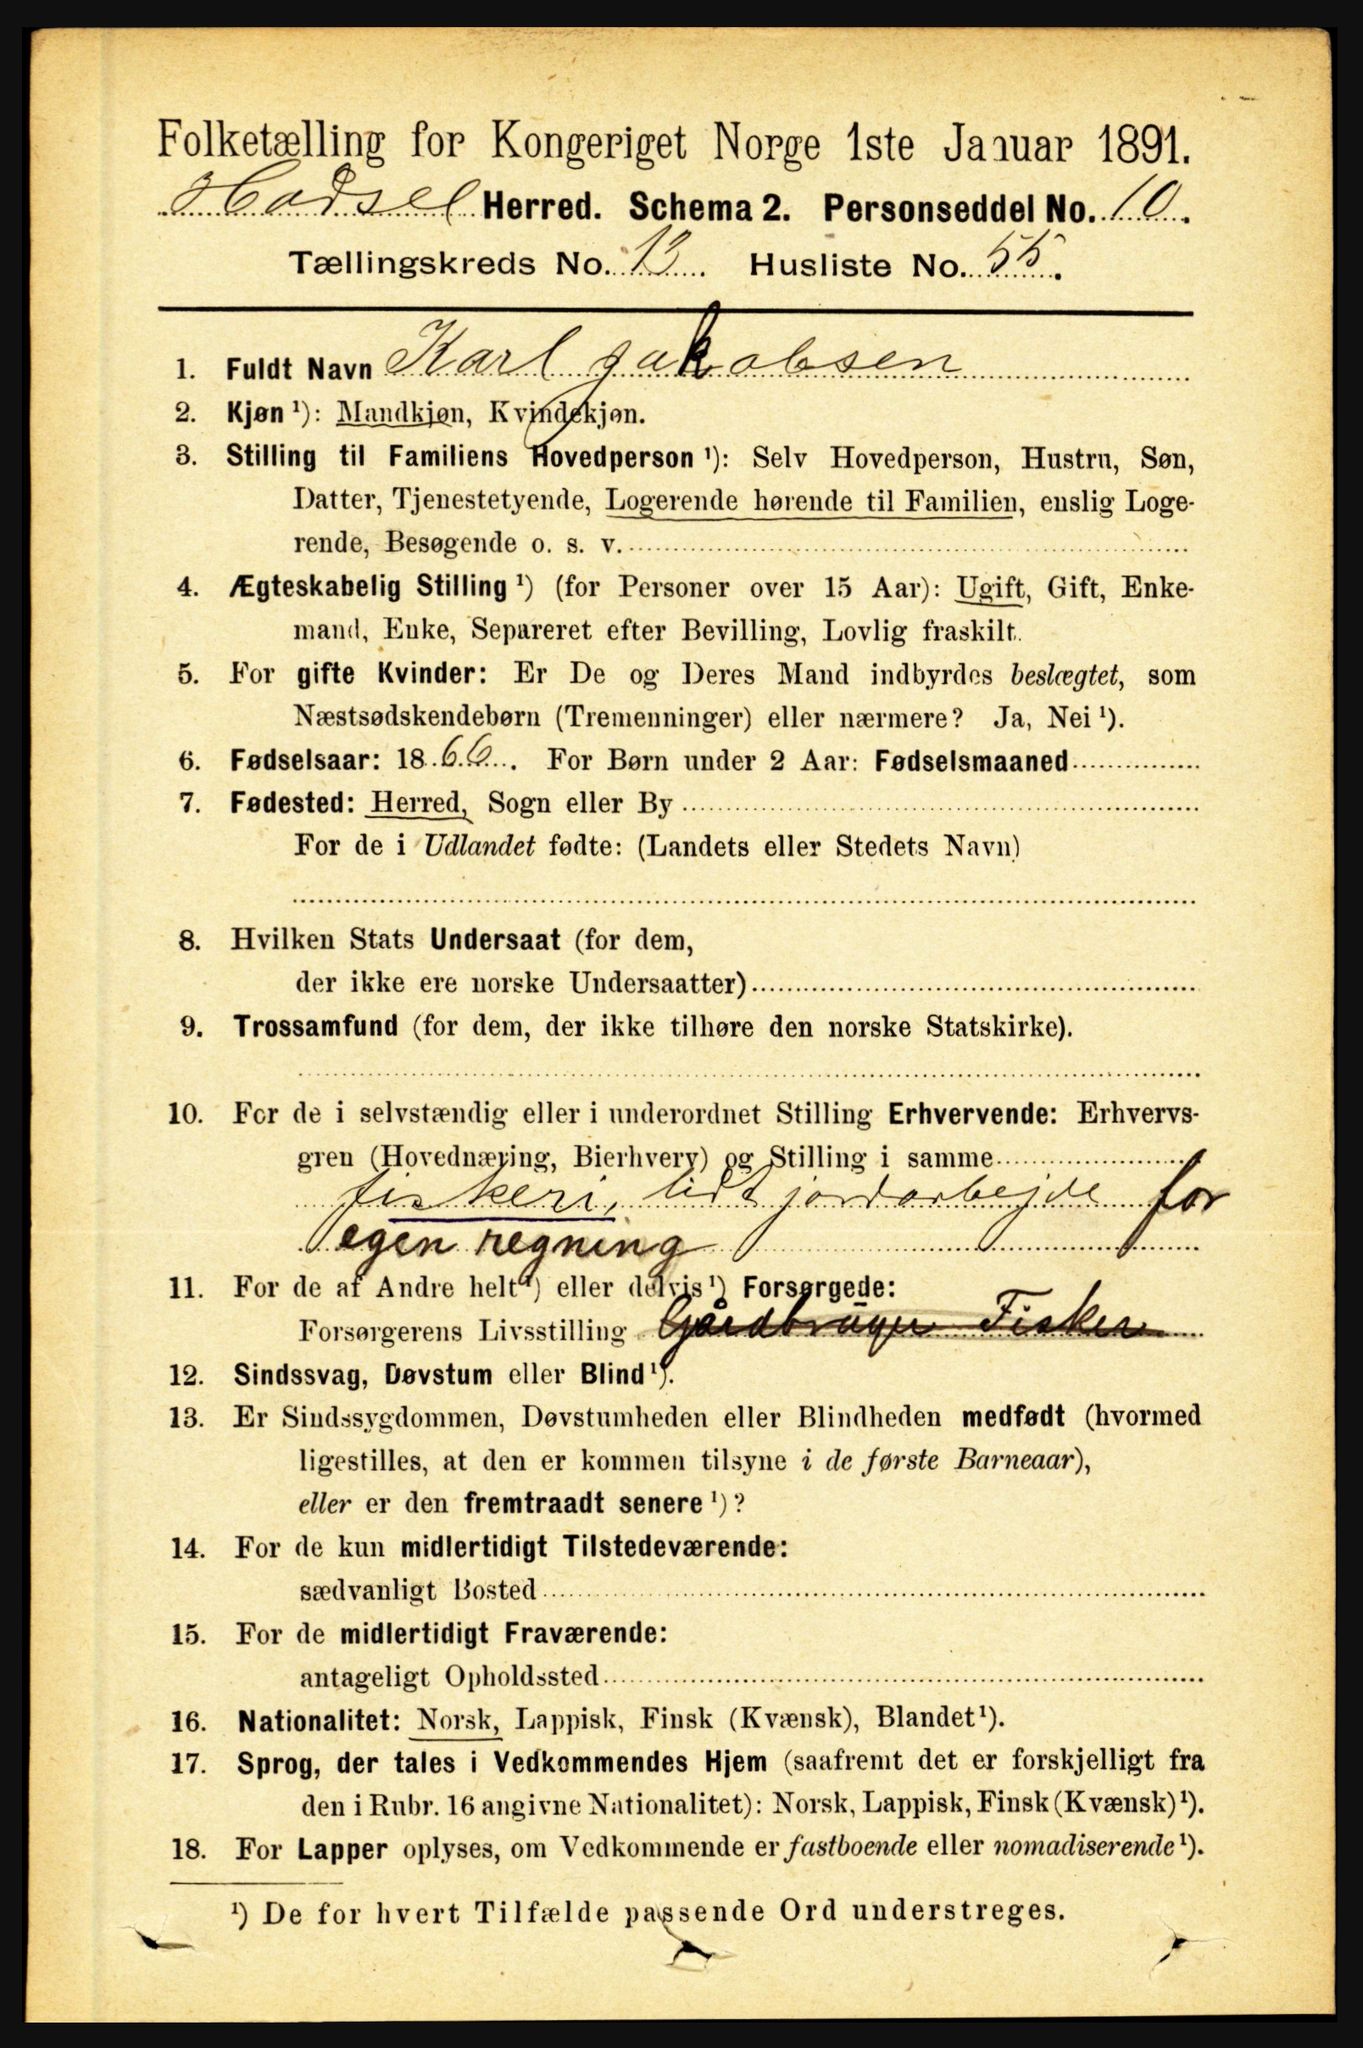 Folketælling for Kongeriget Norge 1ste Januar 1891.
Hadsel Herred. Schema 2. Personseddel No. 10.
Tællingskreds No. 13. Husliste No. 55.
1. Fuldt Navn Karl Jakobsen
2. Kjøn ¹): Mandkjøn, Kvindekjøn.
3. Stilling til Familiens Hovedperson ¹): Selv Hovedperson, Hustru, Søn,
Datter, Tjenestetyende, Logerende hørende til Familien, enslig Loge-
rende, Besøgende o. s. v.
4. Ægteskabelig Stilling ¹) (for Personer over 15 Aar): Ugift, Gift, Enke-
mand, Enke, Separeret efter Bevilling, Lovlig fraskilt.
5. For gifte Kvinder: Er De og Deres Mand indbyrdes beslægtet, som
Næstsødskendebørn (Tremenninger) eller nærmere? Ja, Nei ¹).
6. Fødselsaar: 1866. For Børn under 2 Aar: Fødselsmaaned
7. Fødested: Herred, Sogn eller By
For de i Udlandet fødte: (Landets eller Stedets Navn)
8. Hvilken Stats Undersaat (for dem,
der ikke ere norske Undersaatter)
9. Trossamfund (for dem, der ikke tilhøre den norske Statskirke).
10. For de i selvstændig eller i underordnet Stilling Erhvervende: Erhvervs-
gren (Hovednæring, Bierhverv) og Stilling i samme
fiskeri, lidt jordarbejde for
egen regning
11. For de af Andre helt ¹) eller delvis ¹) Forsørgede:
Forsørgerens Livsstilling Gårdbruger Fisker
12. Sindssvag, Døvstum eller Blind ¹).
13. Er Sindssygdommen, Døvstumheden eller Blindheden medfødt (hvormed
ligestilles, at den er kommen tilsyne i de første Barneaar),
eller er den fremtraadt senere ¹)?
14. For de kun midlertidigt Tilstedeværende:
sædvanligt Bosted
15. For de midlertidigt Fraværende:
antageligt Opholdssted
16. Nationalitet: Norsk, Lappisk, Finsk (Kvænsk), Blandet ¹).
17. Sprog, der tales i Vedkommendes Hjem (saafremt det er forskjelligt fra
den i Rubr. 16 angivne Nationalitet): Norsk, Lappisk, Finsk (Kvænsk) ¹).
18. For Lapper oplyses, om Vedkommende er fastboende eller nomadiserende ¹).
¹) De for hvert Tilfælde passende Ord understreges.